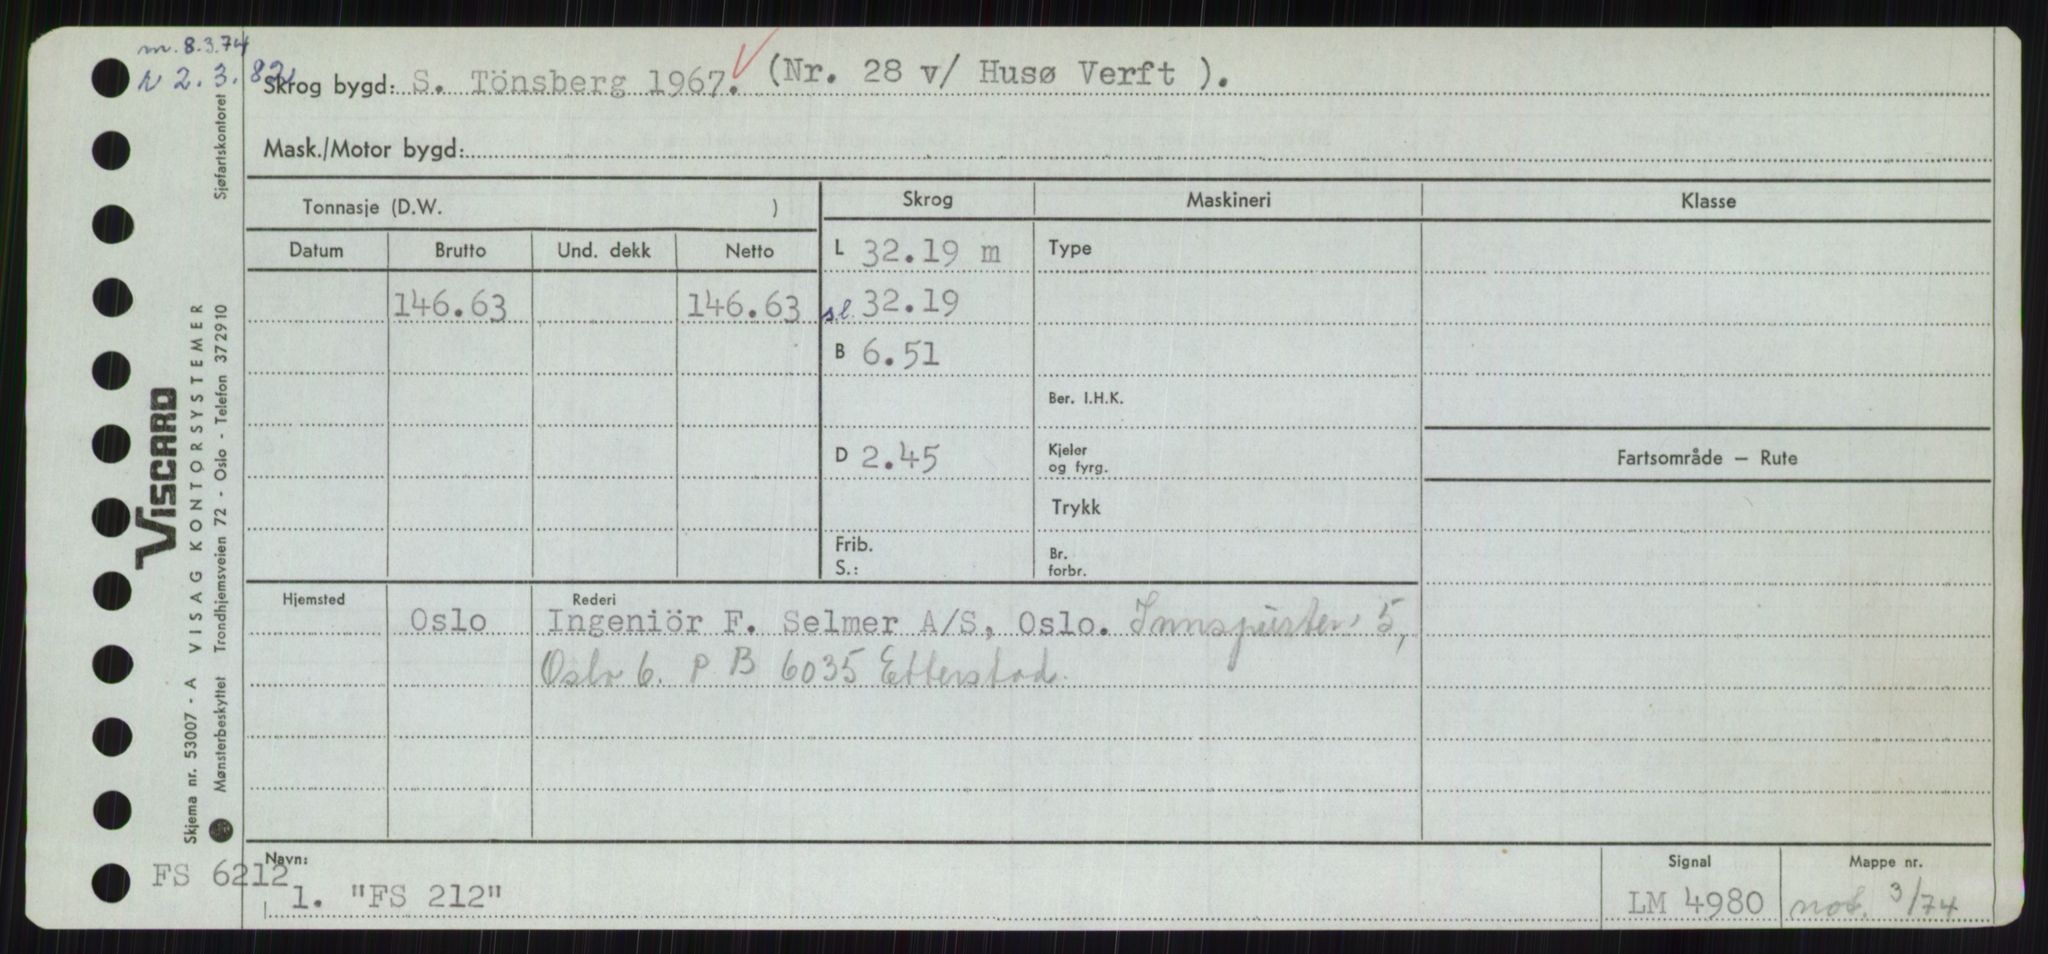 m. 8.3.74
N 2.3.82
Skrog bygd: S. Tönsberg 1967. (Nr. 28 v/ Husø Verft ).
Mask./Motor bygd:
Tonnasje (D.W. )
Skrog Maskineri Klasse
Datum Brutto Und. dekk Netto
L 32.19 m Type
146.63 146.63 sl. 32.19
B 6.51
Ber. I.H.K.
D 2.45 Kjeler
og fyrg.
Fartsområde – Rute
Trykk
Frib. Br.
S.: forbr.
Hjemsted Rederi
Oslo Ingeniör F. Selmer A/S, Oslo. Innspurten 5,
Oslo 6. P B 6035 Etterstad.
Navn: Signal Mappe nr.
FS 6212
1. "FS 212" LM 4980 not. 3/74
Sjøfartskontoret
VISCARD
Skjema nr. 53007 - A VISAG KONTORSYSTEMER
Mønsterbeskyttet Trondhjemsveien 72 - Oslo - Telefon 372910